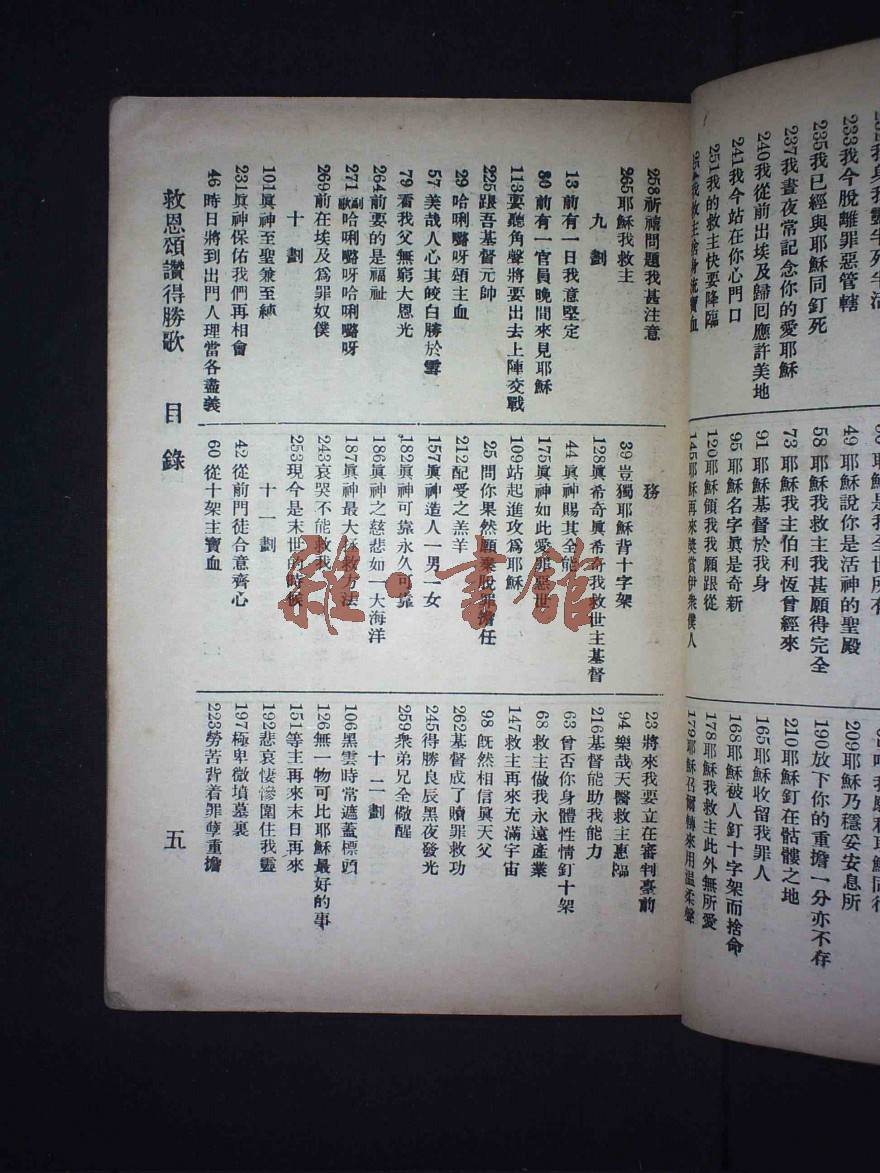 233我今脫離罪惡管轄
235我已經與耶穌同釘死
237我晝夜常記念你的愛耶穌
240我從前出埃及歸回應許美地
241我今站在你心門口
251我的救主快要降臨
我救主捨身流寶血
49耶穌說你是活神的聖殿
58耶穌我救主我甚願得完全
73耶穌我主伯利恆曾經來
91耶穌基督於我身
95耶穌名字眞是奇新
120耶穌領我我願跟從
145耶穌再來獎賞伊衆僕人
209耶穌乃穩妥安息所
190放下你的重擔一分亦不存
210耶穌釘在骷髏之地
165耶穌收留我罪人
168耶穌被人釘十字架而捨命
178耶穌我救主此外無所愛
179耶穌召爾轉來用温柔聲
258祈禱問題我甚注意
265耶穌我救主
九劃
13前有一日我意堅定
80前有一官員晚間來見耶穌
113要聽角聲將要出去上陣交戰
225跟吾基督元帥
29哈唎嚕呀頌主血
57美哉人心其皎白勝於雪
79看我父無窮大恩光
264前要的是福祉
271副歌哈唎嚕呀哈唎嚕呀
269前在埃及爲罪奴僕
十劃
101眞神至聖兼至純
231眞神保佑我們再相會
46時日將到出門人理當各盡義
務
39豈獨耶穌背十字架
128眞希奇眞希奇我救世主基督
44眞神賜其全能
175眞神如此愛罪惡世
109站起進攻爲耶穌
25問你果然願棄脫罪擔任
212配受之羔羊
157眞神造人一男一女
182眞神可靠永久可靠
186眞神之慈悲如一大海洋
187眞神最大拯救方法
243哀哭不能救我
253現今是末世的時候
十一劃
42從前門徒合意齊心
60從十架主寶血
23將來我要立在審判臺前
94樂哉天醫救主惠臨
216基督能助我能力
63曾否你身體性情釘十架
68救主做我永遠產業
147救主再來充滿宇宙
98旣然相信眞天父
262基督成了贖罪救功
245得勝良辰黑夜發光
259衆弟兄全儆醒
十二劃
106黑雲時常遮蓋標頭
126無一物可比耶穌最好的事
151等主再來末日再來
192悲哀悽慘圍住我靈
197極卑微墳墓裏
223勞苦背着罪孽重擔
救恩頌讚得勝歌 目錄
五
雜·書館